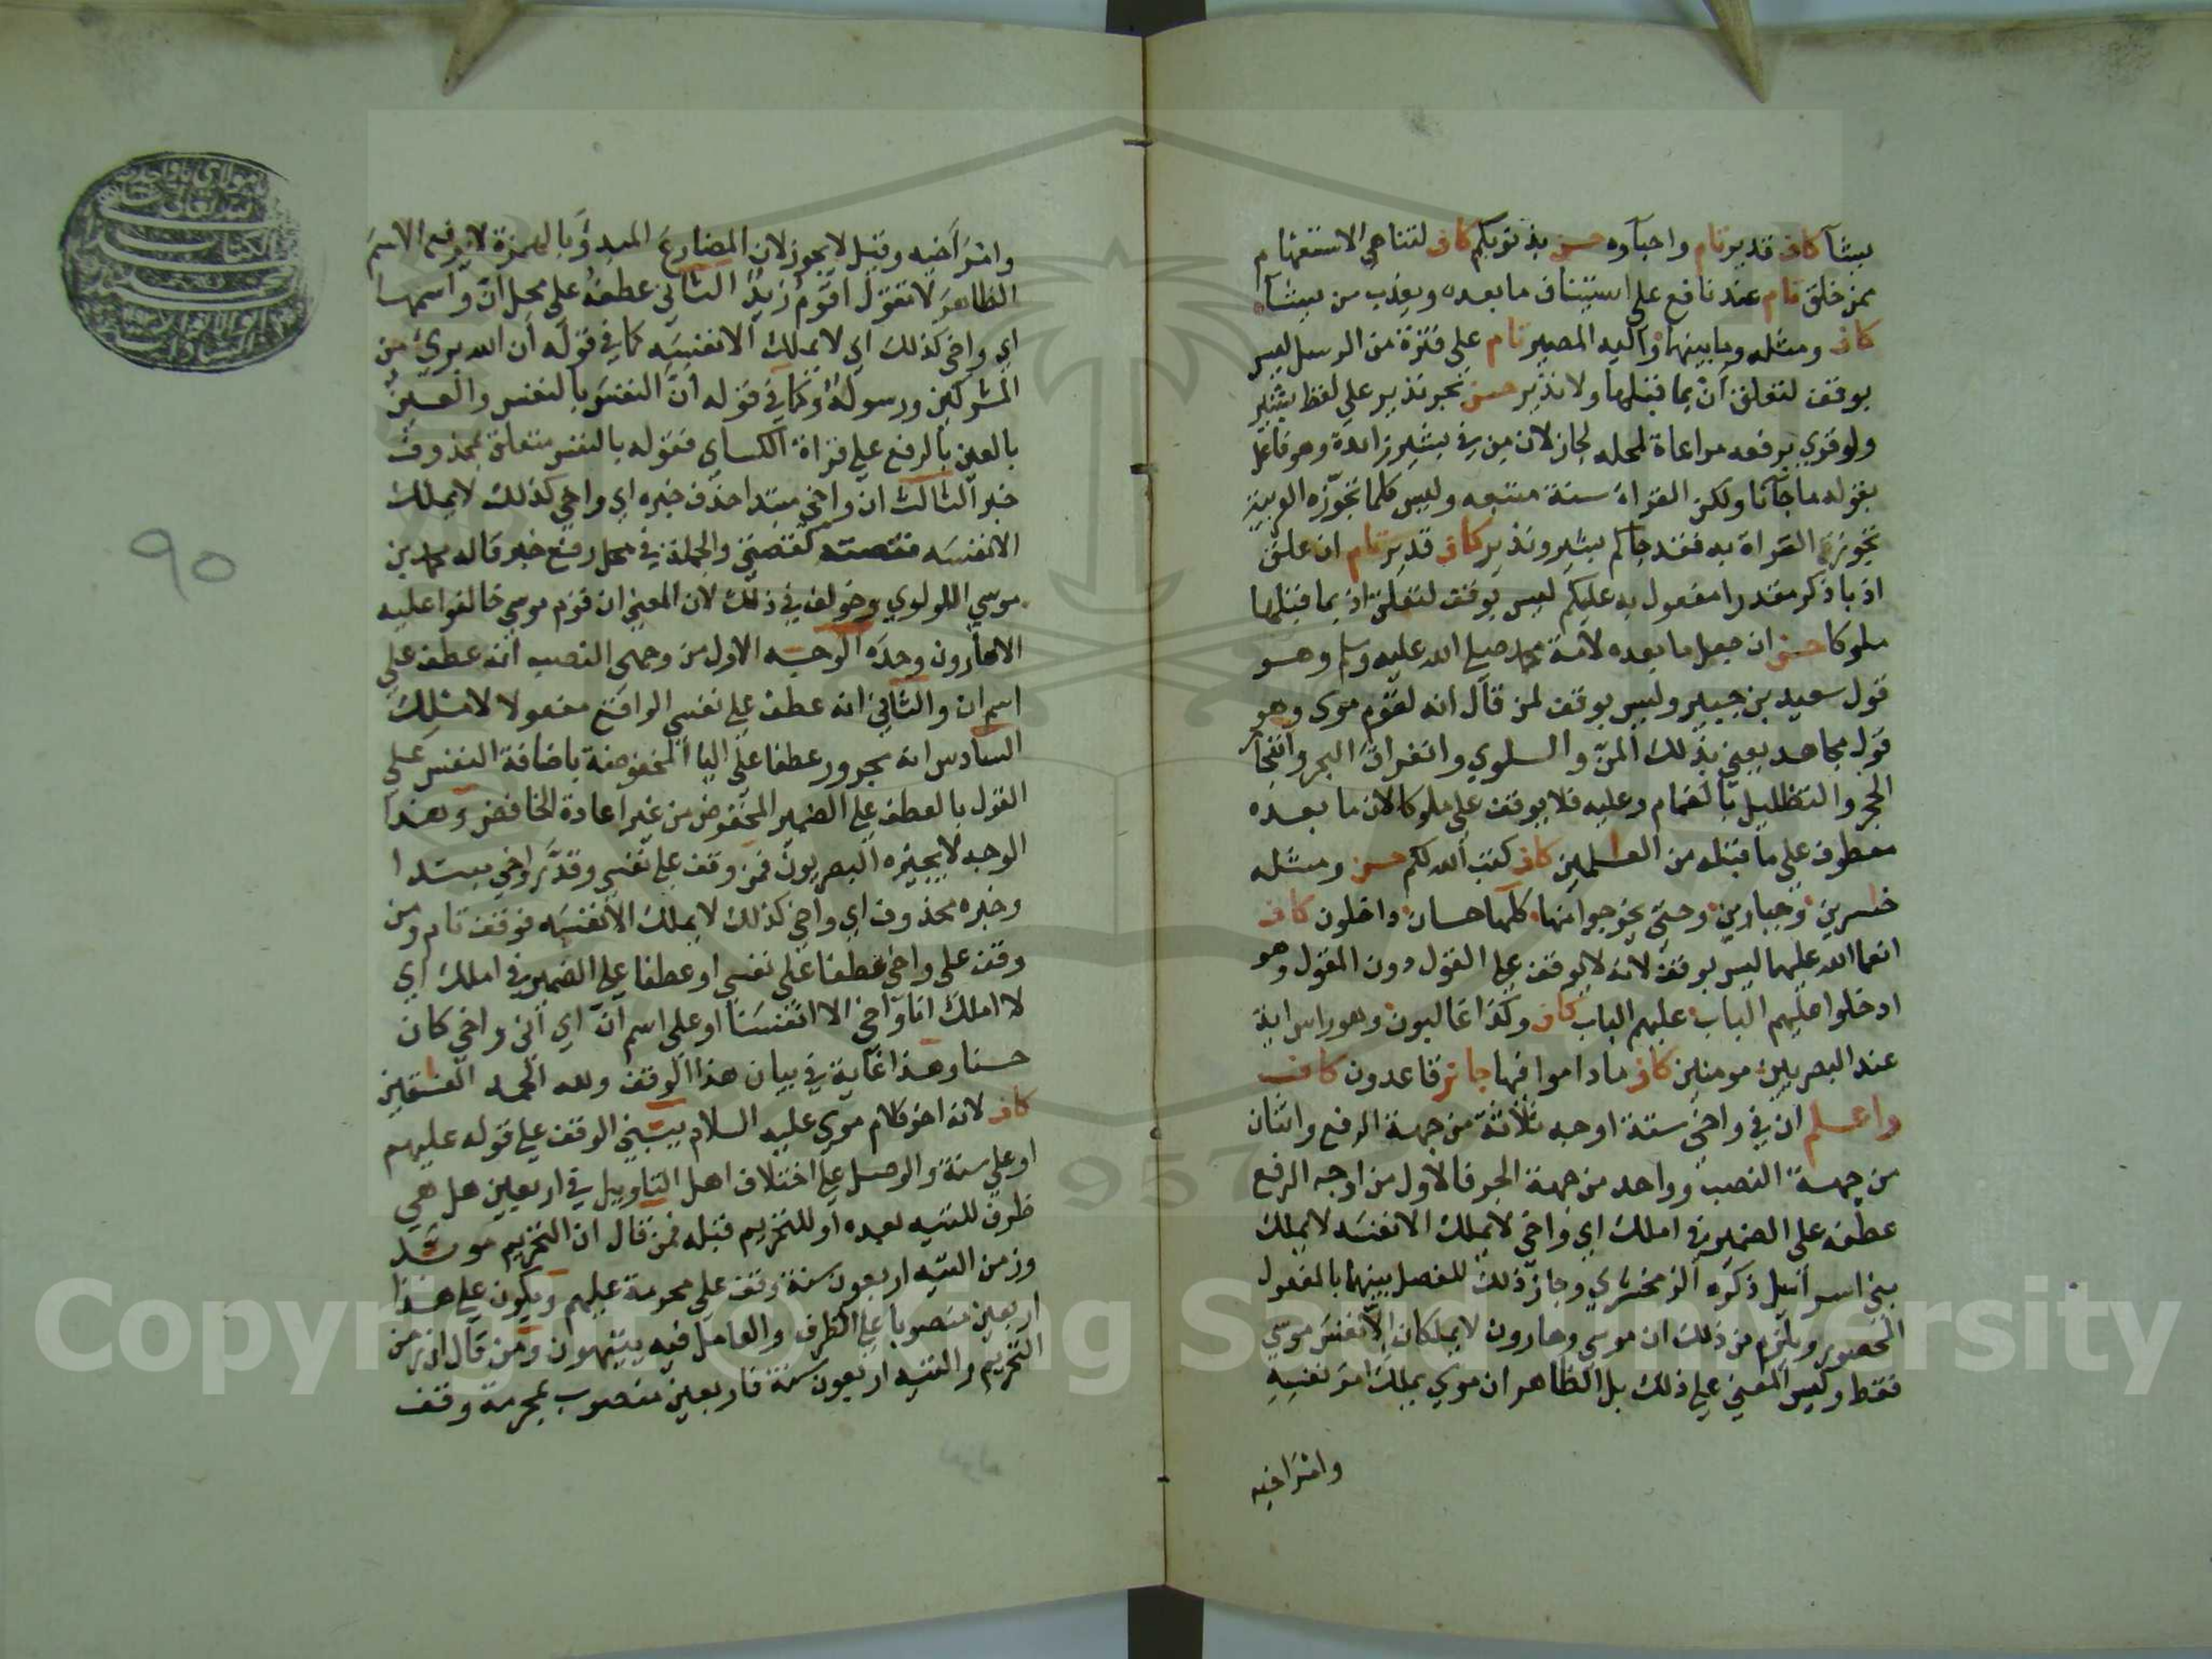 يشآ كاف قدير تام واحباوه حسن بذنوبكم كاف لتناهي الاستفهام
ممن خلق تام عند نافع على استيناف ما بعده ويعذب من يشآ
كاف ومثله وما بينهما واليه المصير تام على فترة من الرسل ليس
بوقف لتعلق ان بما قبلها ولا نذير حسن نجر نذير على لفظ بشير
ولو قري برفعه مراعاة لمحله لجاز لان من في بشير زائدة وهو فاعل
بقوله ما جآنا ولكن القراة سنة متبعه وليس كلما تجوّزه العربية
تجوز القراة به فقد جاكم بشير ونذير كاف قدير تام ان علق
اذ باذكر مقدرا مفعول به عليكم ليس بوقف لتعلق اذ بما قبلها
ملوكا حسن ان جعل ما بعده لامة محمد صلى الله عليه وسلم وهو
قول سعيد بن جبير وليس بوقف لمن قال انه لقوم موسى وهو
قول مجاهد يعني بذلك المنّ والسلوي وانفراق البحر وانفجار
الحجر والتظليل بالغمام وعليه فلا يوقف على ملوكا لان ما بعده
معطوف على ما قبله من العلمين كاف كتب الله لكم حسن ومثله
خاسرين وجبارين وحتى يخرجوا منها كلها حسان داخلون كاف
انعم الله عليهما ليس بوقف لانه لا يوقف على القول دون المقول وهو
ادخلوا عليهم الباب عليهم الباب كاف وكذا غالبون وهو راس اية
عند البصريين مومنين كاف ما داموا فيها جائز قاعدون كاف
واعلم ان في واخي ستة اوجه ثلاثة من جهة الرفع واثنان
من جهة النصب وواحد من جهة الجر فالاول من اوجه الرفع
عطفه على الضمير في املك اي واخي لا يملك الا نفسه لا يملك
بني اسرائيل ذكره الزمخشري وجاز ذلك للفصل بينهما بالمفعول
المحصور ويلزم من ذلك ان موسى وهارون لا يملكان الا نفس موسى
فقط وليس المعني على ذلك بل الظاهر ان موسي يملك امر نفسه
وامر اخيه
وامر اخيه وقيل لا يجوز لان المضارع المبدؤ بالهمزة لا يرفع الاسم
الظاهر لا تقول اقوم زيد الثاني عطفه على محل ان واسمها
اي واخي كذلك اي لا يملك الا نفسه كما في قوله ان الله بريء من
المشركين ورسوله وكما في قوله ان النفس بالنفس والعين
بالعين بالرفع على قراة الكساي فقوله بالنفس متعلق بمحذوف
خبر الثالث ان واخي مبتدا حذف خبره اي واخي كذلك لا يملك
الا نفسه فقصته كقصتي والجملة في محل رفع خبر قاله محمد بن
موسي اللولوي وخولف في ذلك لان المعني ان قوم موسي خالفوا عليه
الا هارون وحده الوجه الاول من وجهي النصب انه عطف على
اسم ان والثاني انه عطف على نفسي الواقع مفعولا لاملك
السادس انه مجرور عطفا على اليا المخفوضة باضافة النفس على
القول بالعطف على الضمير المخفوض من غير اعادة الخافض وهذا
الوجه لا يجيزه البصريون فمن وقف على نفسي وقدّر واخي مبتدا
وخبره محذوف اي واخي كذلك لا يملك الا نفسه فوقف تام ومن
وقف على واخي عطفا على نفسي او عطفا على الضمير في املك اي
لا املك انا واخي الا انفسنا او على اسم ان اي اني واخي كان
حسنا وهذا غاية في بيان هذا الوقف ولله الحمد الفسقين
كاف لانه اخر كلام موسي عليه السلام يبتني الوقف على قوله عليهم
او على سنة والوصل على اختلاف اهل التاويل في اربعين هل هي
ظرف للتيه بعده او للتحريم قبله فمن قال ان التحريم موبد
وزمن التيه اربعون سنة وقف على محرمة عليهم ويكون على هذا
اربعين منصوبا على الظرف والعامل فيه يتيهون ومن قال ان زمن
التحريم والتيه اربعون سنة فاربعين منصوب بمحرمة وقف
٩٥
Copyright © King Saud University
1957